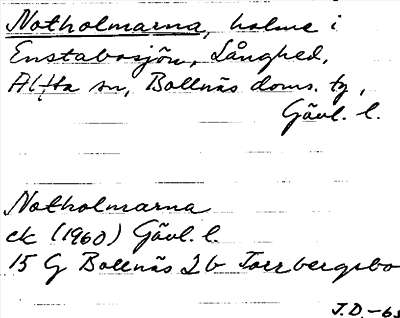 Notholmarna, holme i
Enstabosjön, Långhed,
Alfta sn, Bollnäs doms. tg,
Gävl. l.
Notholmarna
ek (1960) Gävl. l.
15 G Bollnäs 2 b Torrbergsbo
J.D. -63